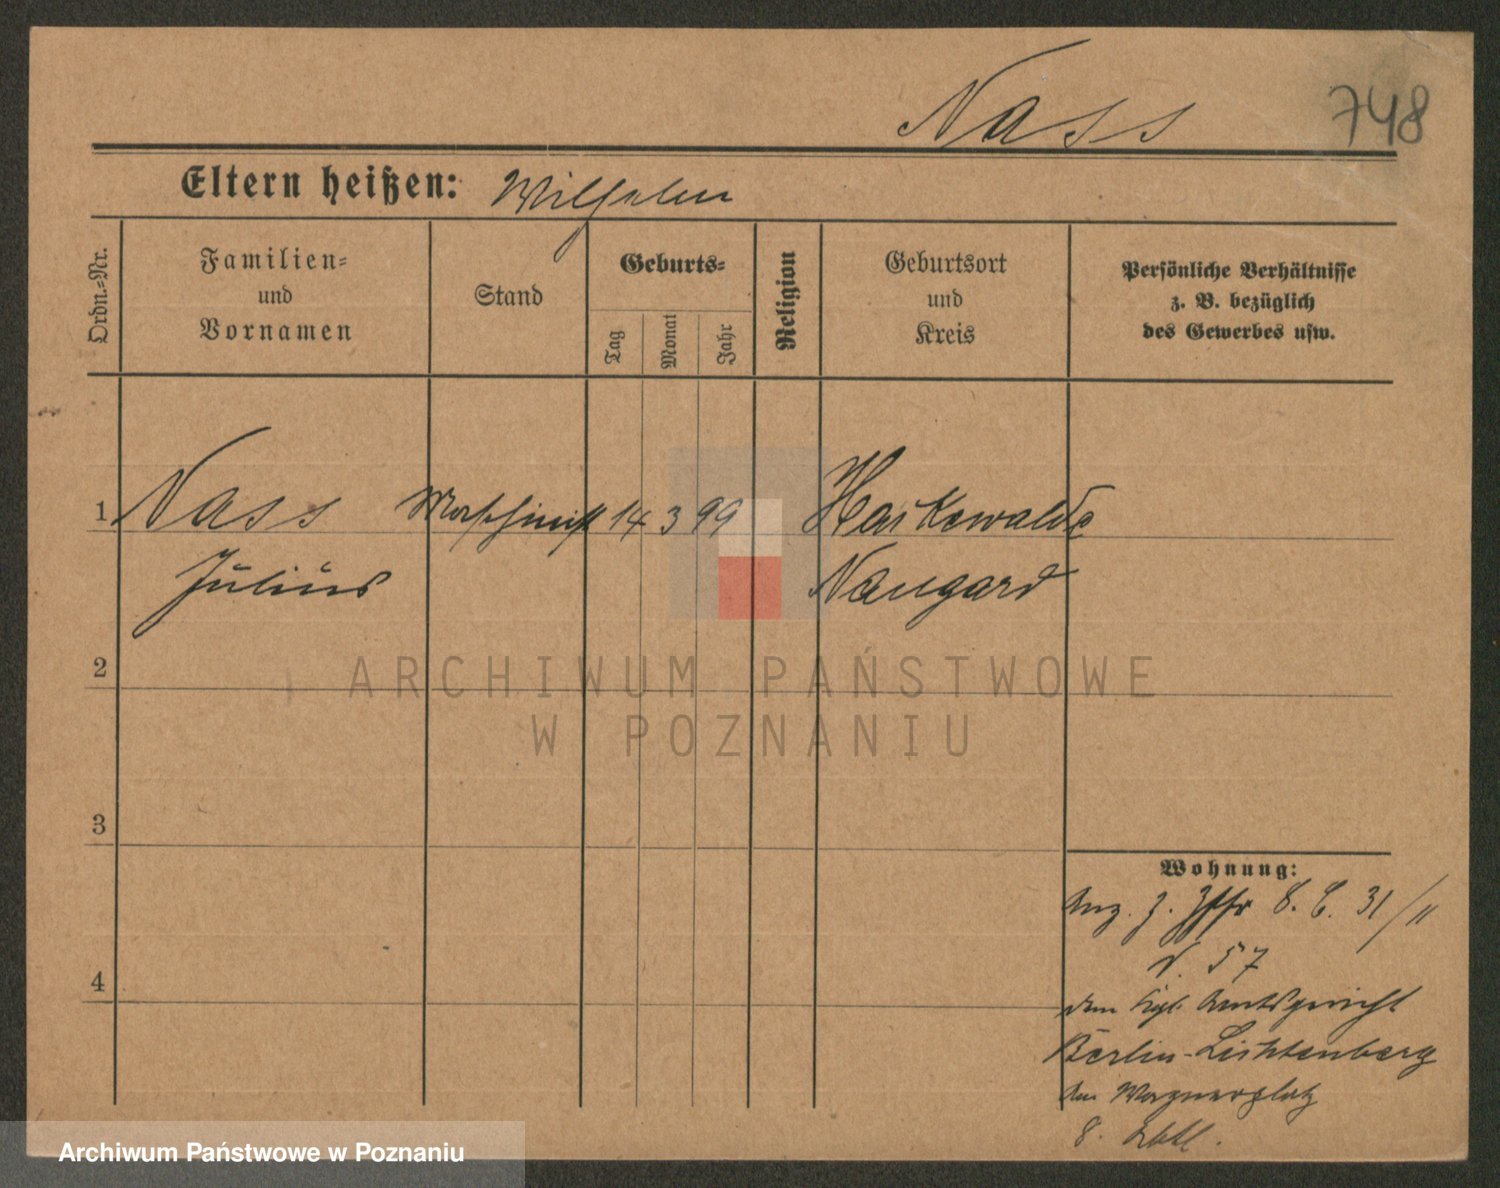 Nass 748
Eltern heißen: Wilhelm
Ordn.-Nr.
Familien=
und
Vornamen
Stand
Geburts=
Tag
Monat
Jahr
Religion
Geburtsort
und
Kreis
Persönliche Verhältnisse
z. B. bezüglich
des Gewerbes usw.
1 Nass Maschinist 14 3 99 Harkewalde
Julius Naugard
2
3
4
Wohnung:
Anz. z. 8. C. 31/11
v. 57
dem Kgl. Amtsgericht
Berlin-Lichtenberg
am Wagnerplatz
8. Abtl.
ARCHIWUM PAŃSTWOWE
W POZNANIU
Archiwum Państwowe w Poznaniu